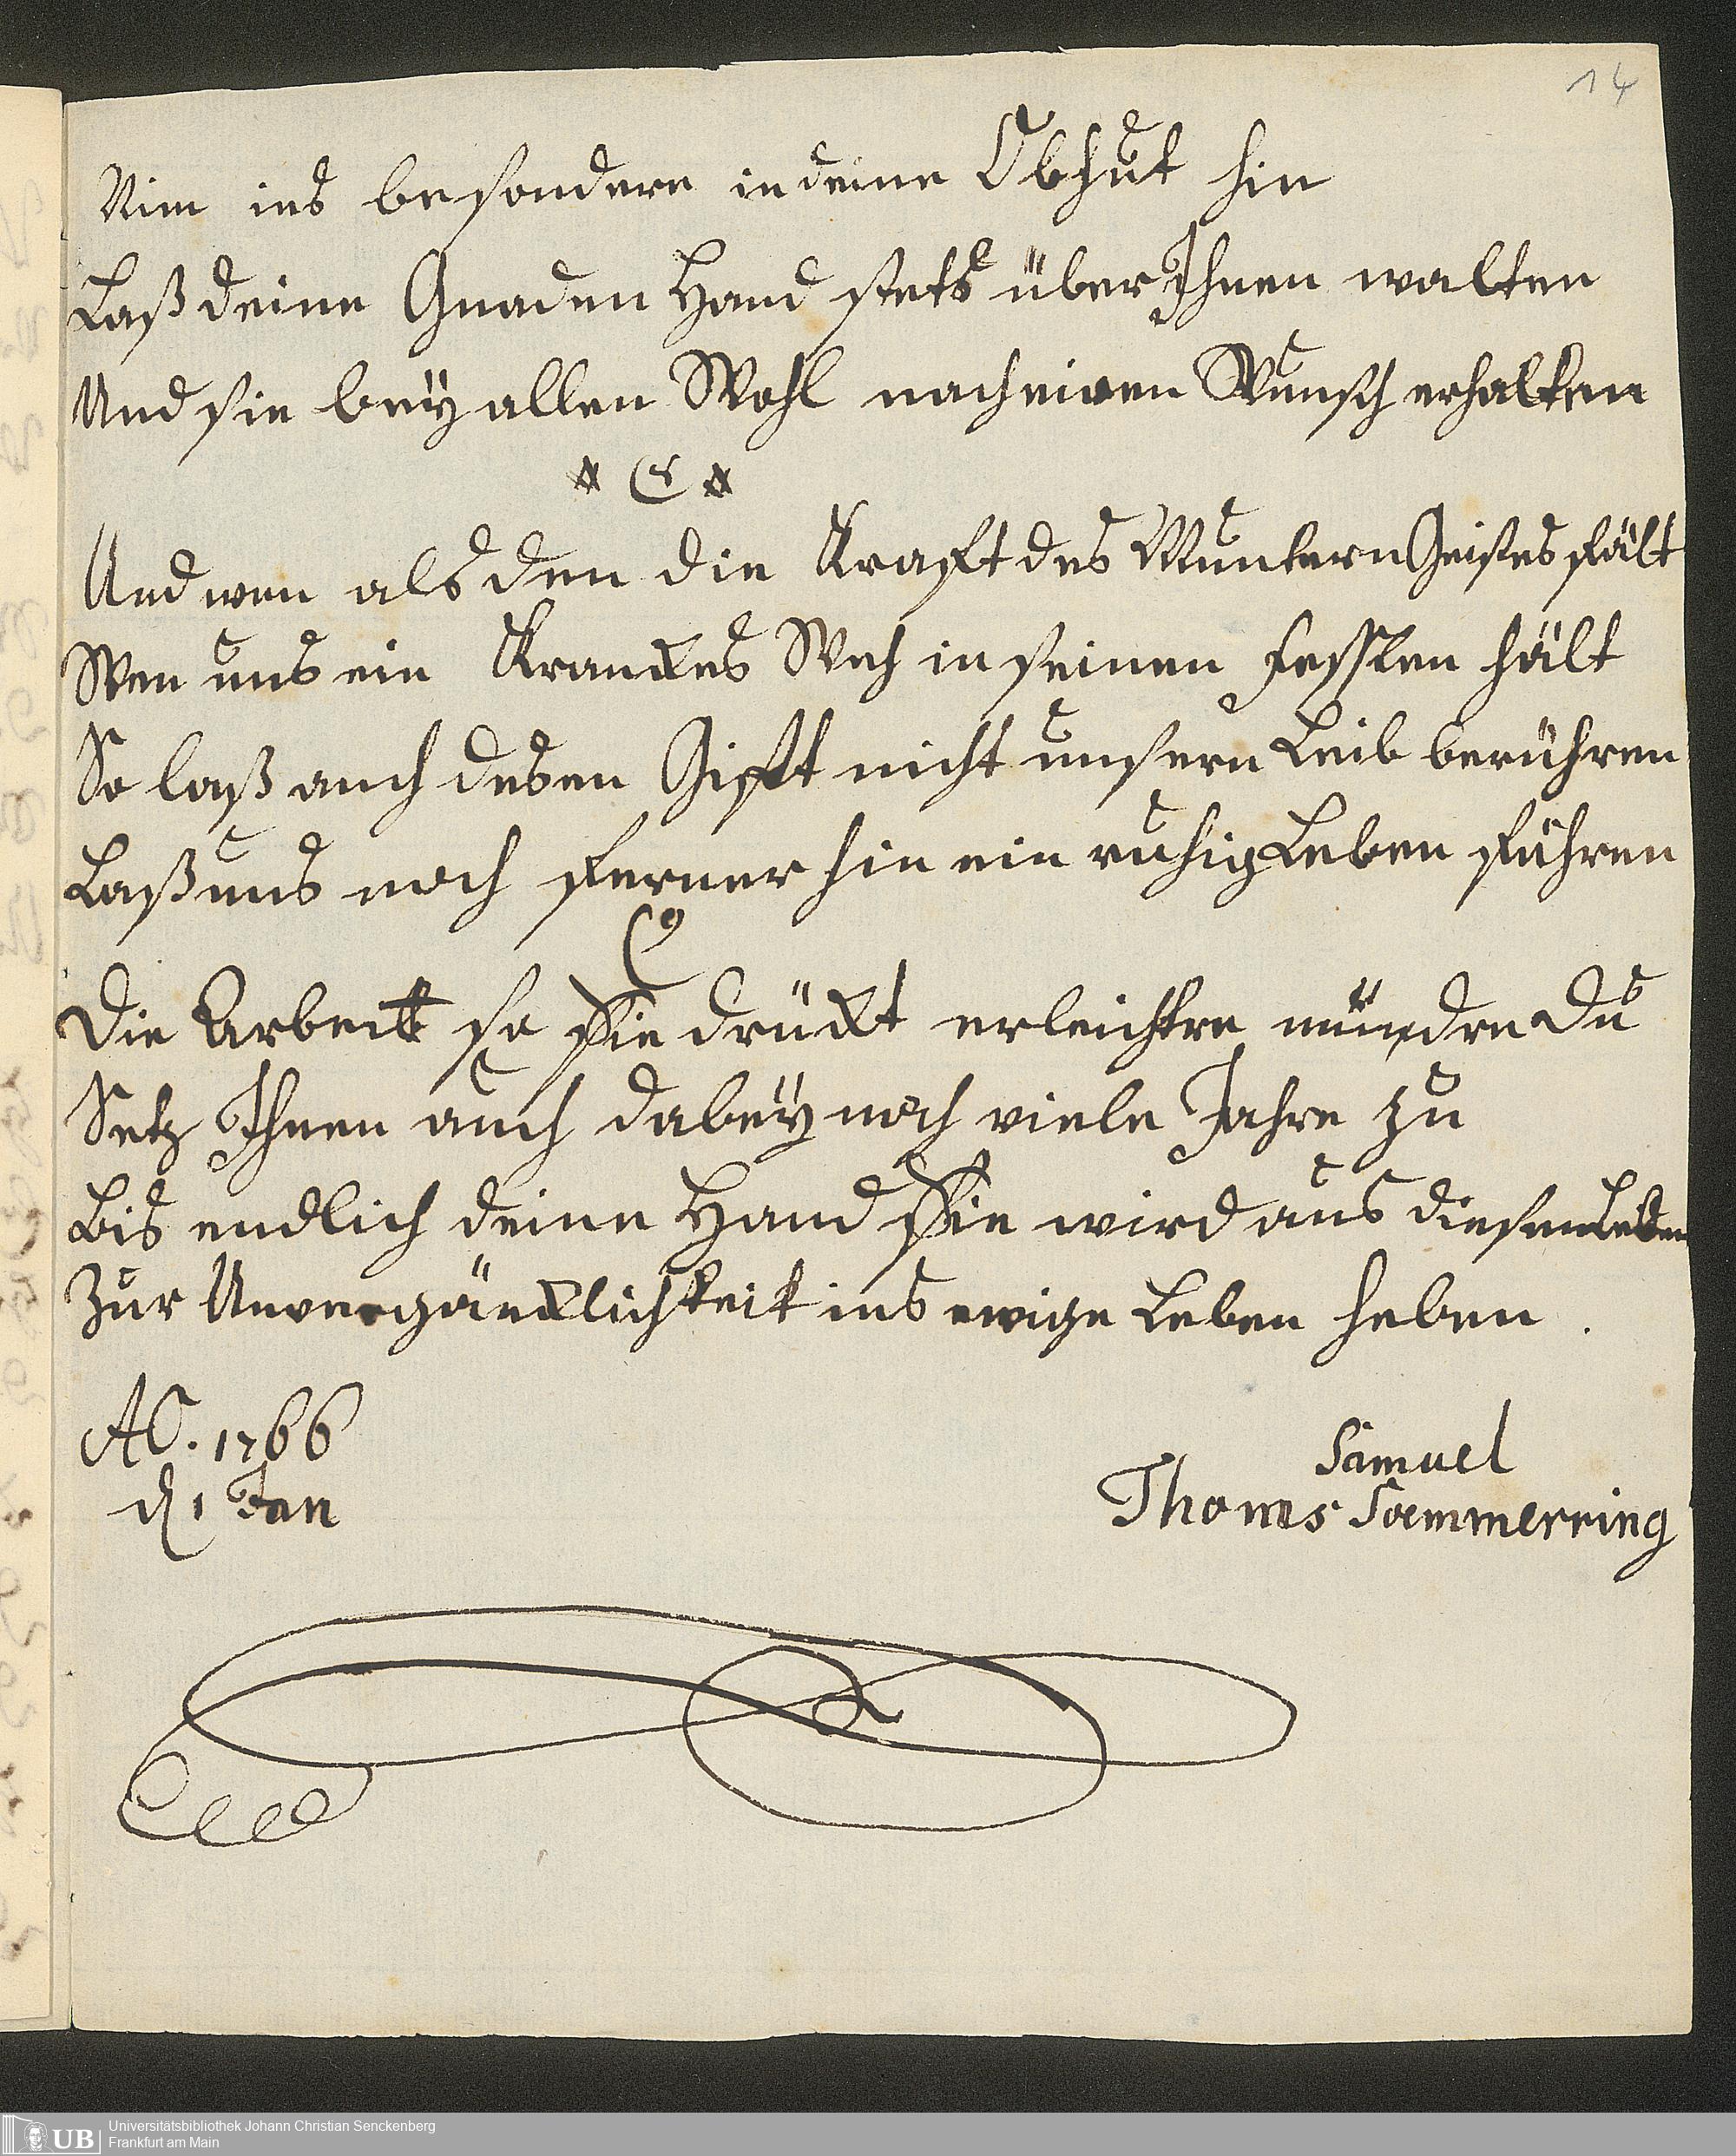 14
Nim ins besondere in deine Obhut hin
Laß deine Gnaden Hand stets über Ihnen walten
Und sie beÿ allen Wohl nach eiren Wunsch erhalten
Und wen als den die Kraft des Muntern Geistes fält
Wen uns ein Kranckes Weh in seinen Fesslen hält
So laß auch desen Gift nicht unsern Leib berühren
Laß uns noch ferner hin ein ruhig Leben führen
Die Arbeit so Sie drückt erleichtre mindre Du
Setz Ihnen auch dabeÿ noch viele Jahre zu
Bis endlich deine Hand Sie wird aus diesen Leben
Zur Unvergäncklichkeit ins ewige Leben heben .
AO. 1766
d 1 Jan
Samuel
Thoms Soemmerring
UB
Universitätsbibliothek Johann Christian Senckenberg
Frankfurt am Main